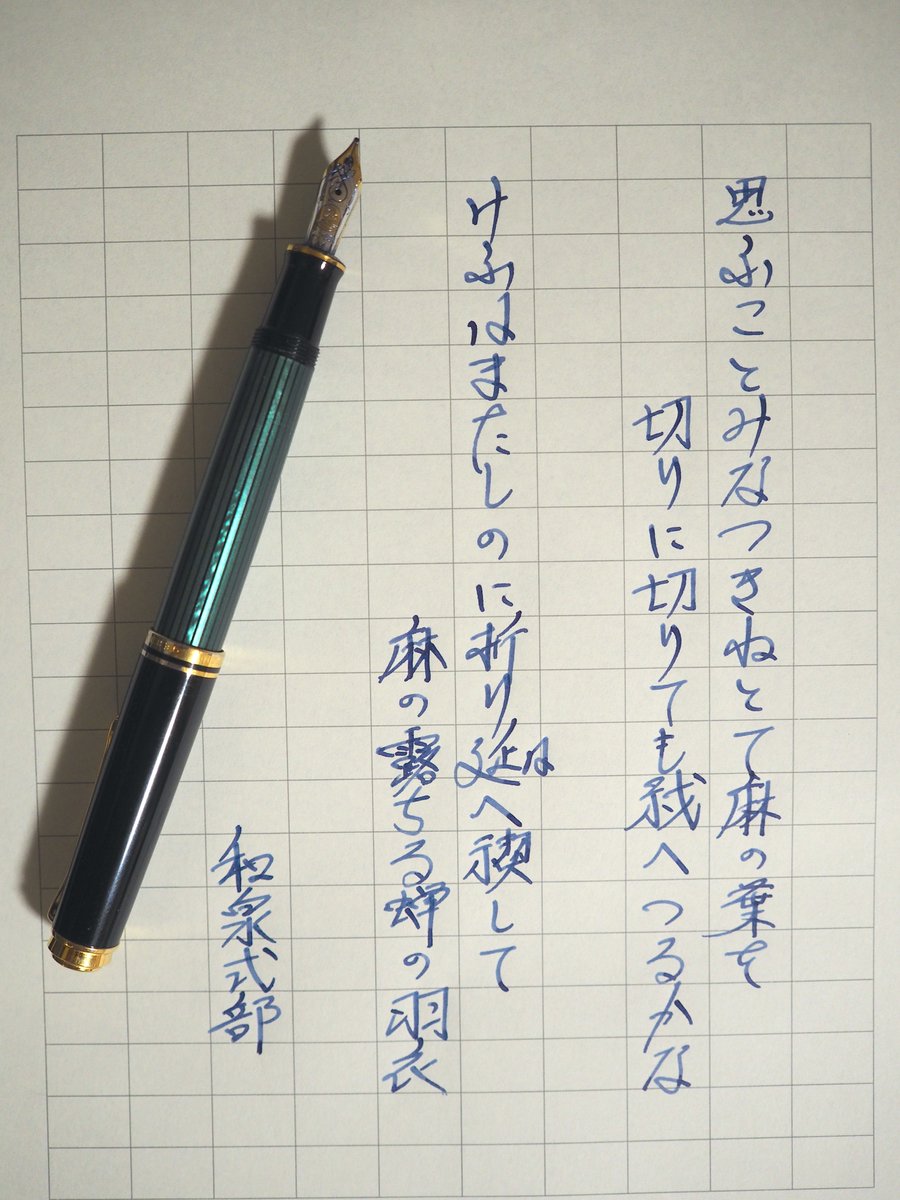 思ふことみなつきねとて麻の葉を
切りに切りても祓へつるかな
けふはまたしのに折り延はへ禊して
麻の露ちる蝉の羽衣
和泉式部